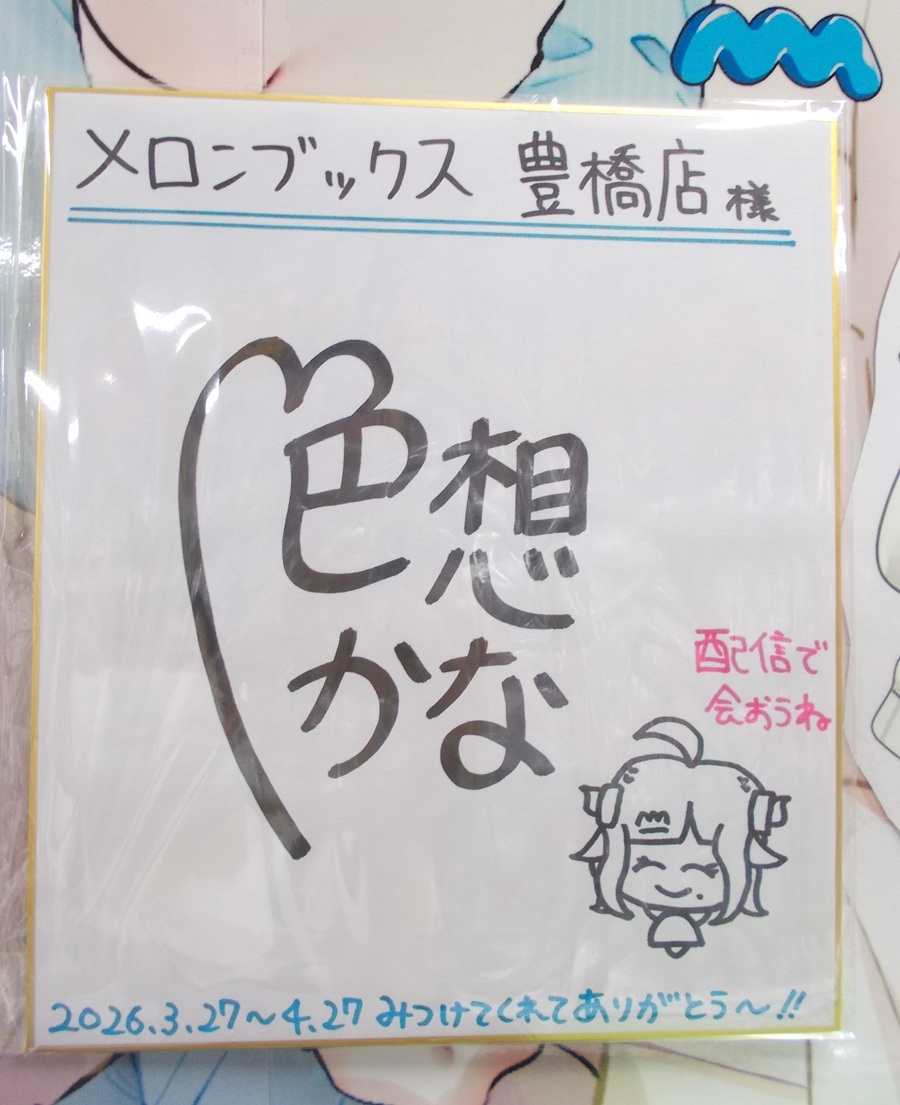 メロンブックス 豊橋店様
色想
かな
配信で
会おうね
2026.3.27～4.27 みつけてくれてありがとう～!!